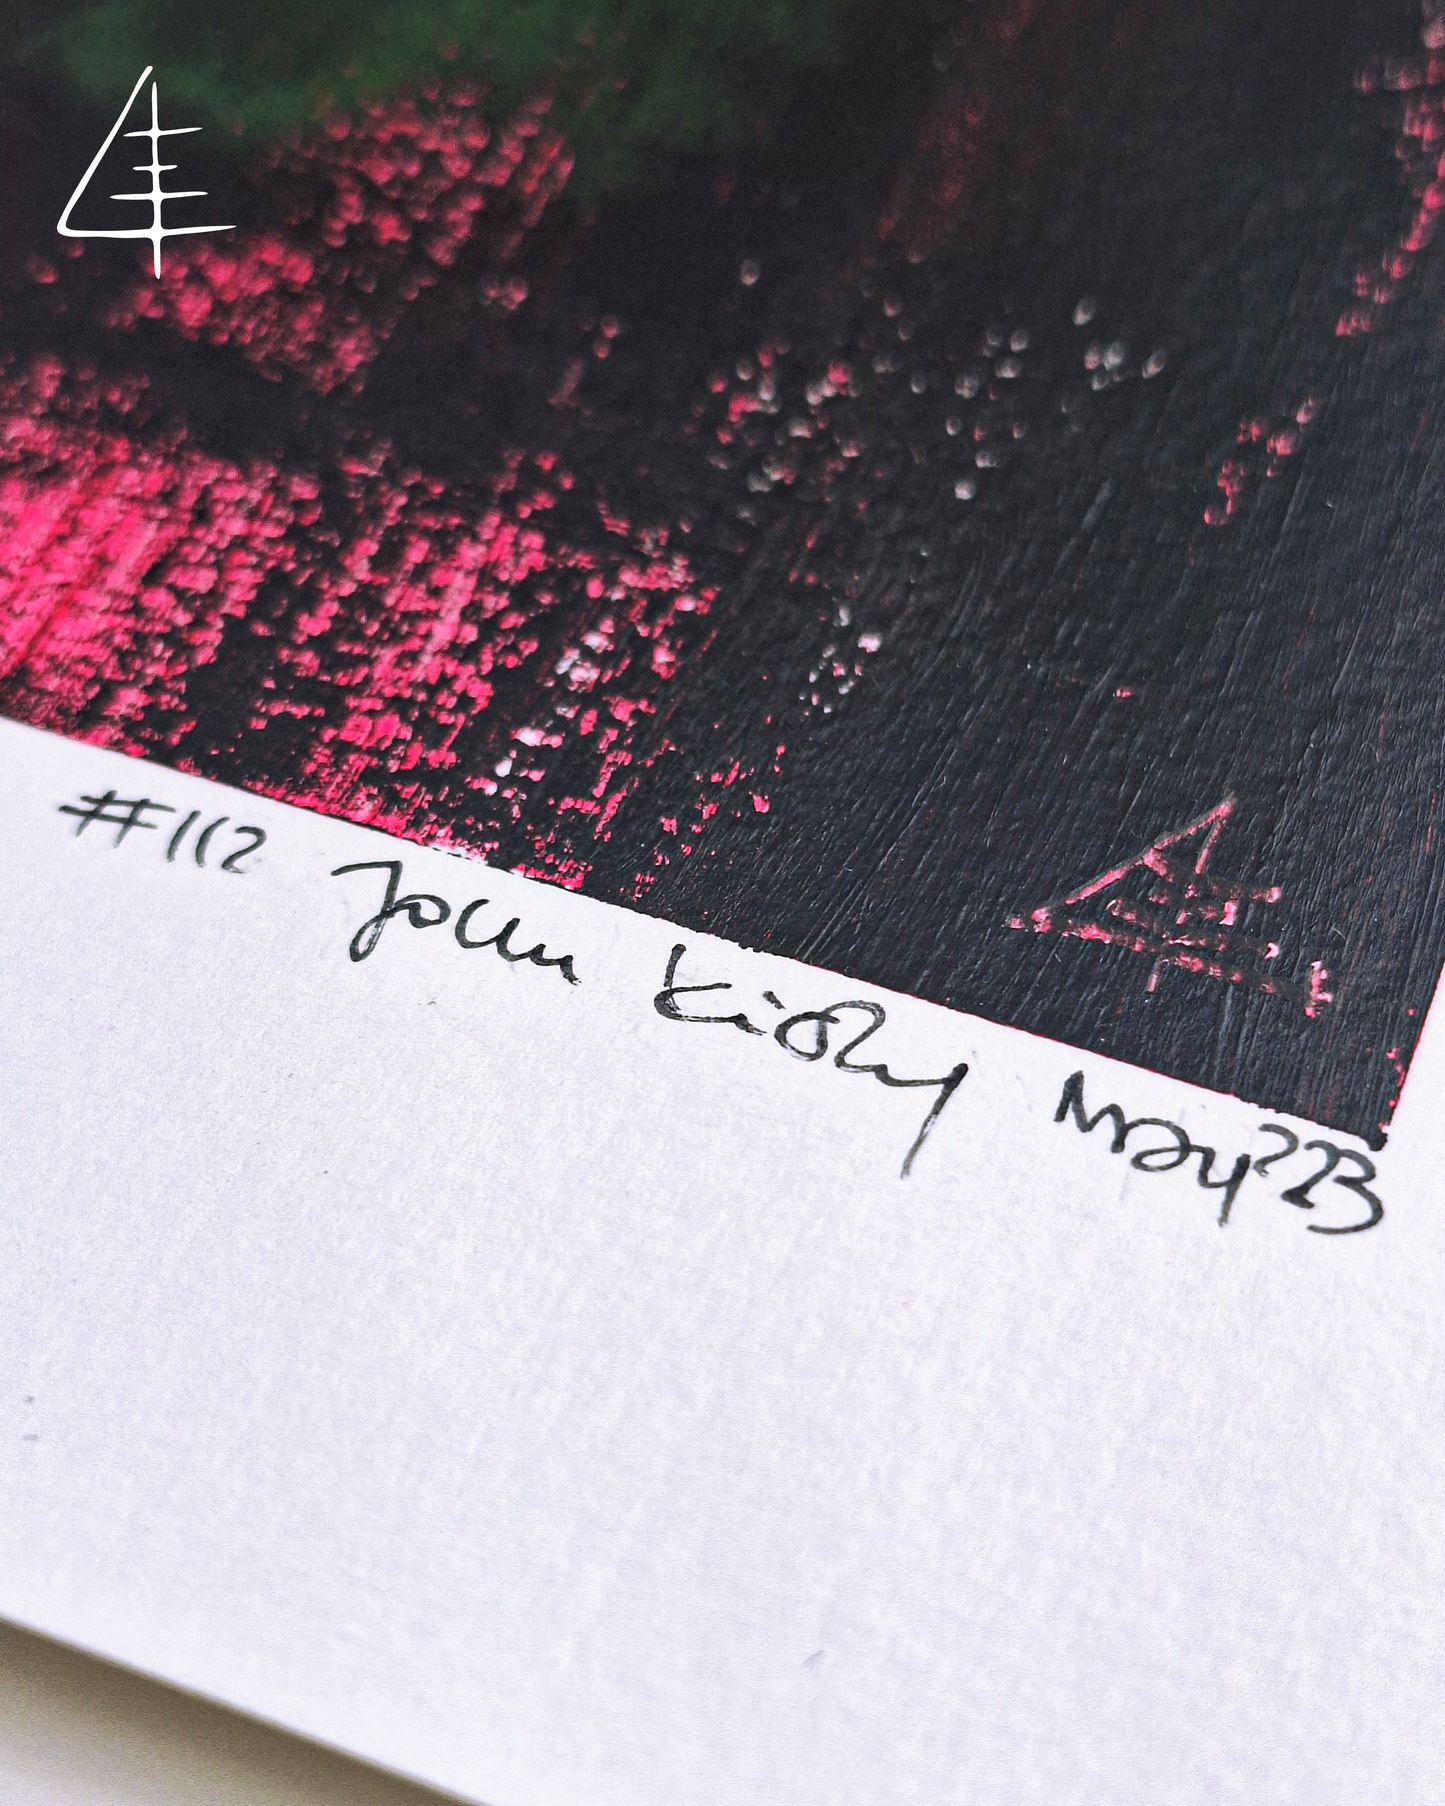 #112 John Kirby May '23